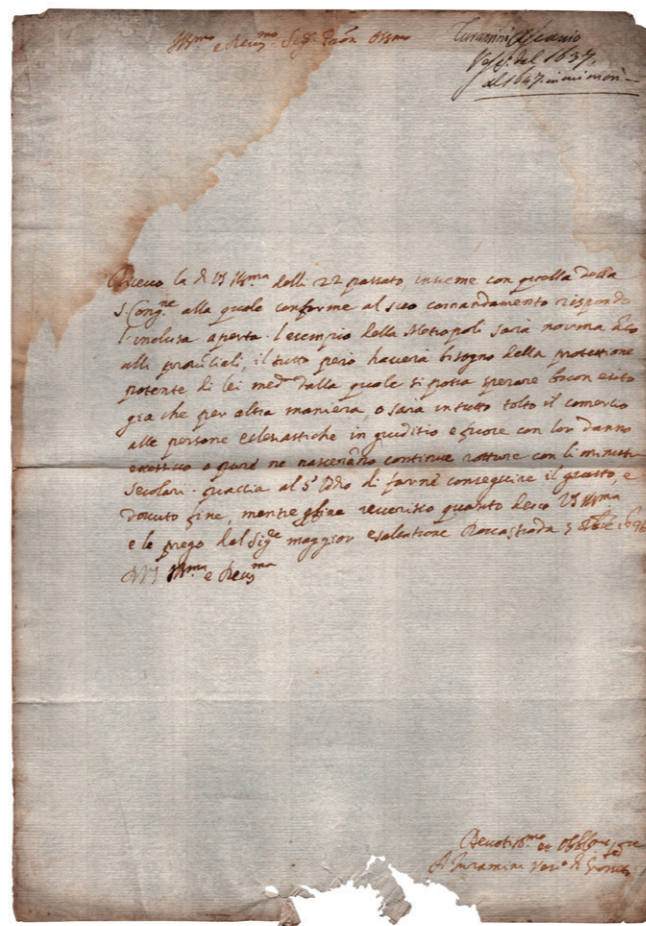 Ill.mo e Rev.mo Sig.r Pròn Oss.mo
Turamini Ascanio
Vesc. del 1637.
al 1647. in cui morì
Ricevo la di VS Ill.ma delli 22 passato, insieme con quella della
S. Cong.ne alla quale conforme al suo comandamento rispondo
l'inclusa aperta. l'esempio della Metropoli sarà norma
alli provinciali, il tutto però haverà bisogno della protettione
potente di lei med. dalla quale si potrà sperare buon esito
già che per altra maniera o sarà in tutto tolto il comercio
alle persone eclesiastiche in giuditio e fuore con lor danno
eccessivo o pure ne nasceranno continue rotture con li ministri
secolari. piaccia al S. Iddio di farne conseguire il giusto, e
dovuto fine, mentre per fine reverisco quanto devo VS Ill.ma
e le prego dal Sig.re maggior esaltatione Roccastrada 5
Di VS Ill.ma e Rev.ma
Devotis.mo et Obblig.mo
A Turamini Vesc.o di Grosseto